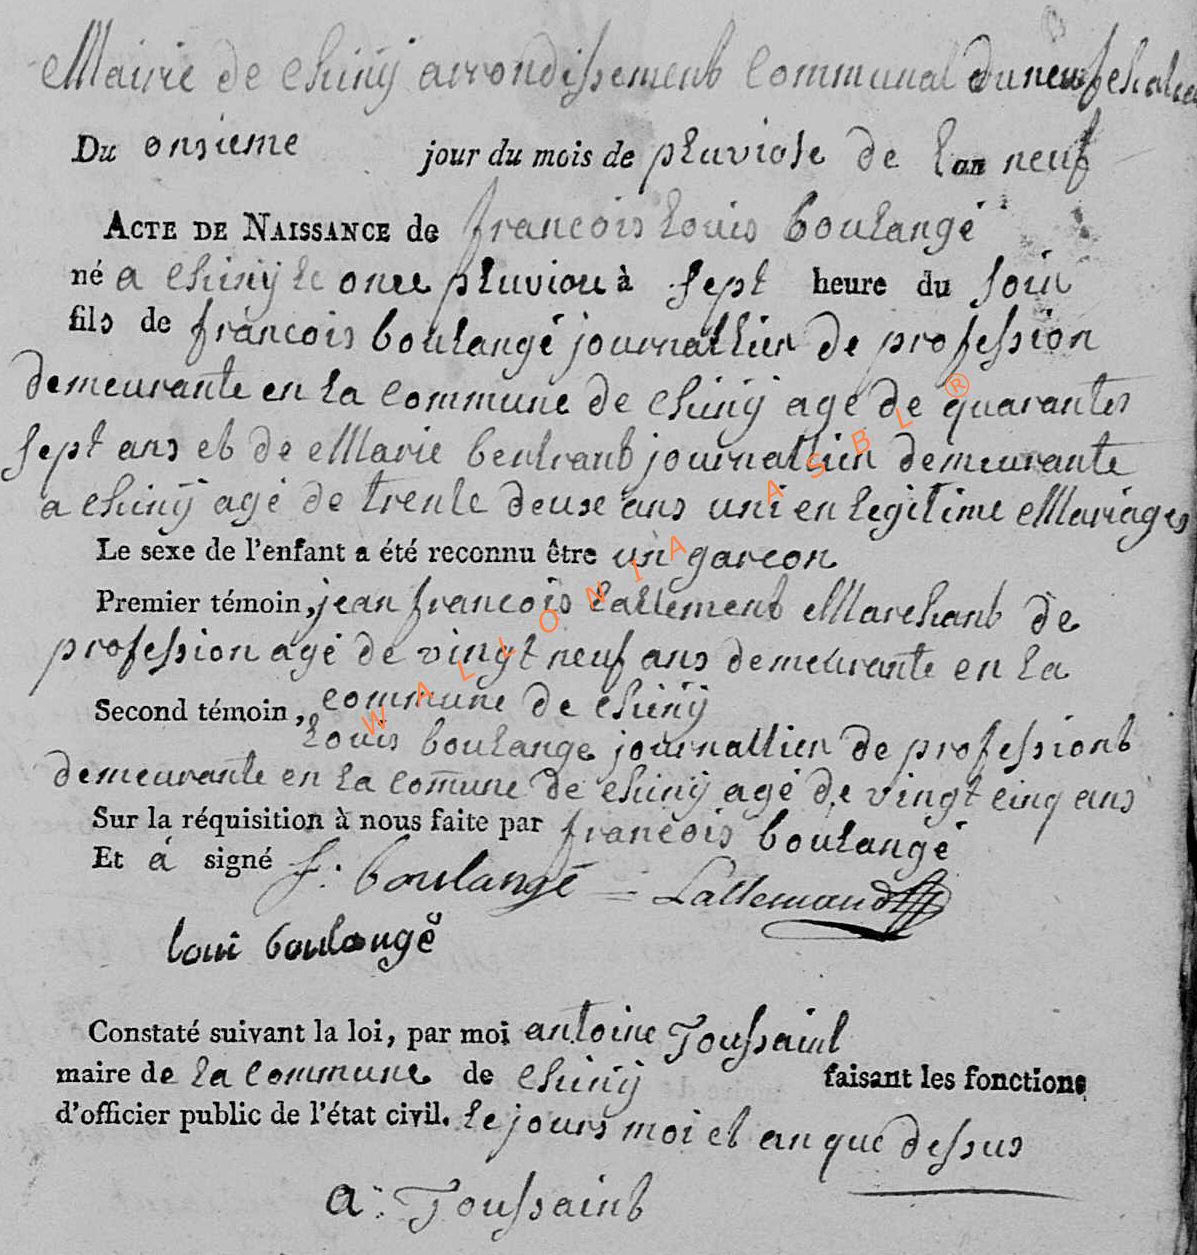 Mairie de Chiny arrondissement Communal du neufchatea
Du onsieme jour du mois de pluviose de l'an neuf
ACTE DE NAISSANCE de francois Louis boulangé
né a Chiny le onze pluviou à sept heure du soir
fils de francois boulangé journallier de profession
demeurante en la commune de Chiny agé de quarantes
sept ans et de Marie bentrant journallier demeurante
a Chiny agé de trente deuse ans uni en legitime Mariages
Le sexe de l'enfant a été reconnu être un garcon
Premier témoin, jean francois Lallement Marchant de
profession agé de vingt neuf ans demeurante en la
commune de Chiny
Second témoin,
Louis boulange journallier de professiont
demeurante en la comune de Chiny agé de vingt cinq ans
Sur la réquisition à nous faite par francois boulangé
Et á signé f. boulangé = Lallemand
loui boulangé
Constaté suivant la loi, par moi antoine Toussaint
maire de La Commune de Chiny faisant les fonctions
d'officier public de l'état civil. Le jours moi et an que dessus
a. Toussaint
WALLONIA ASBL ®